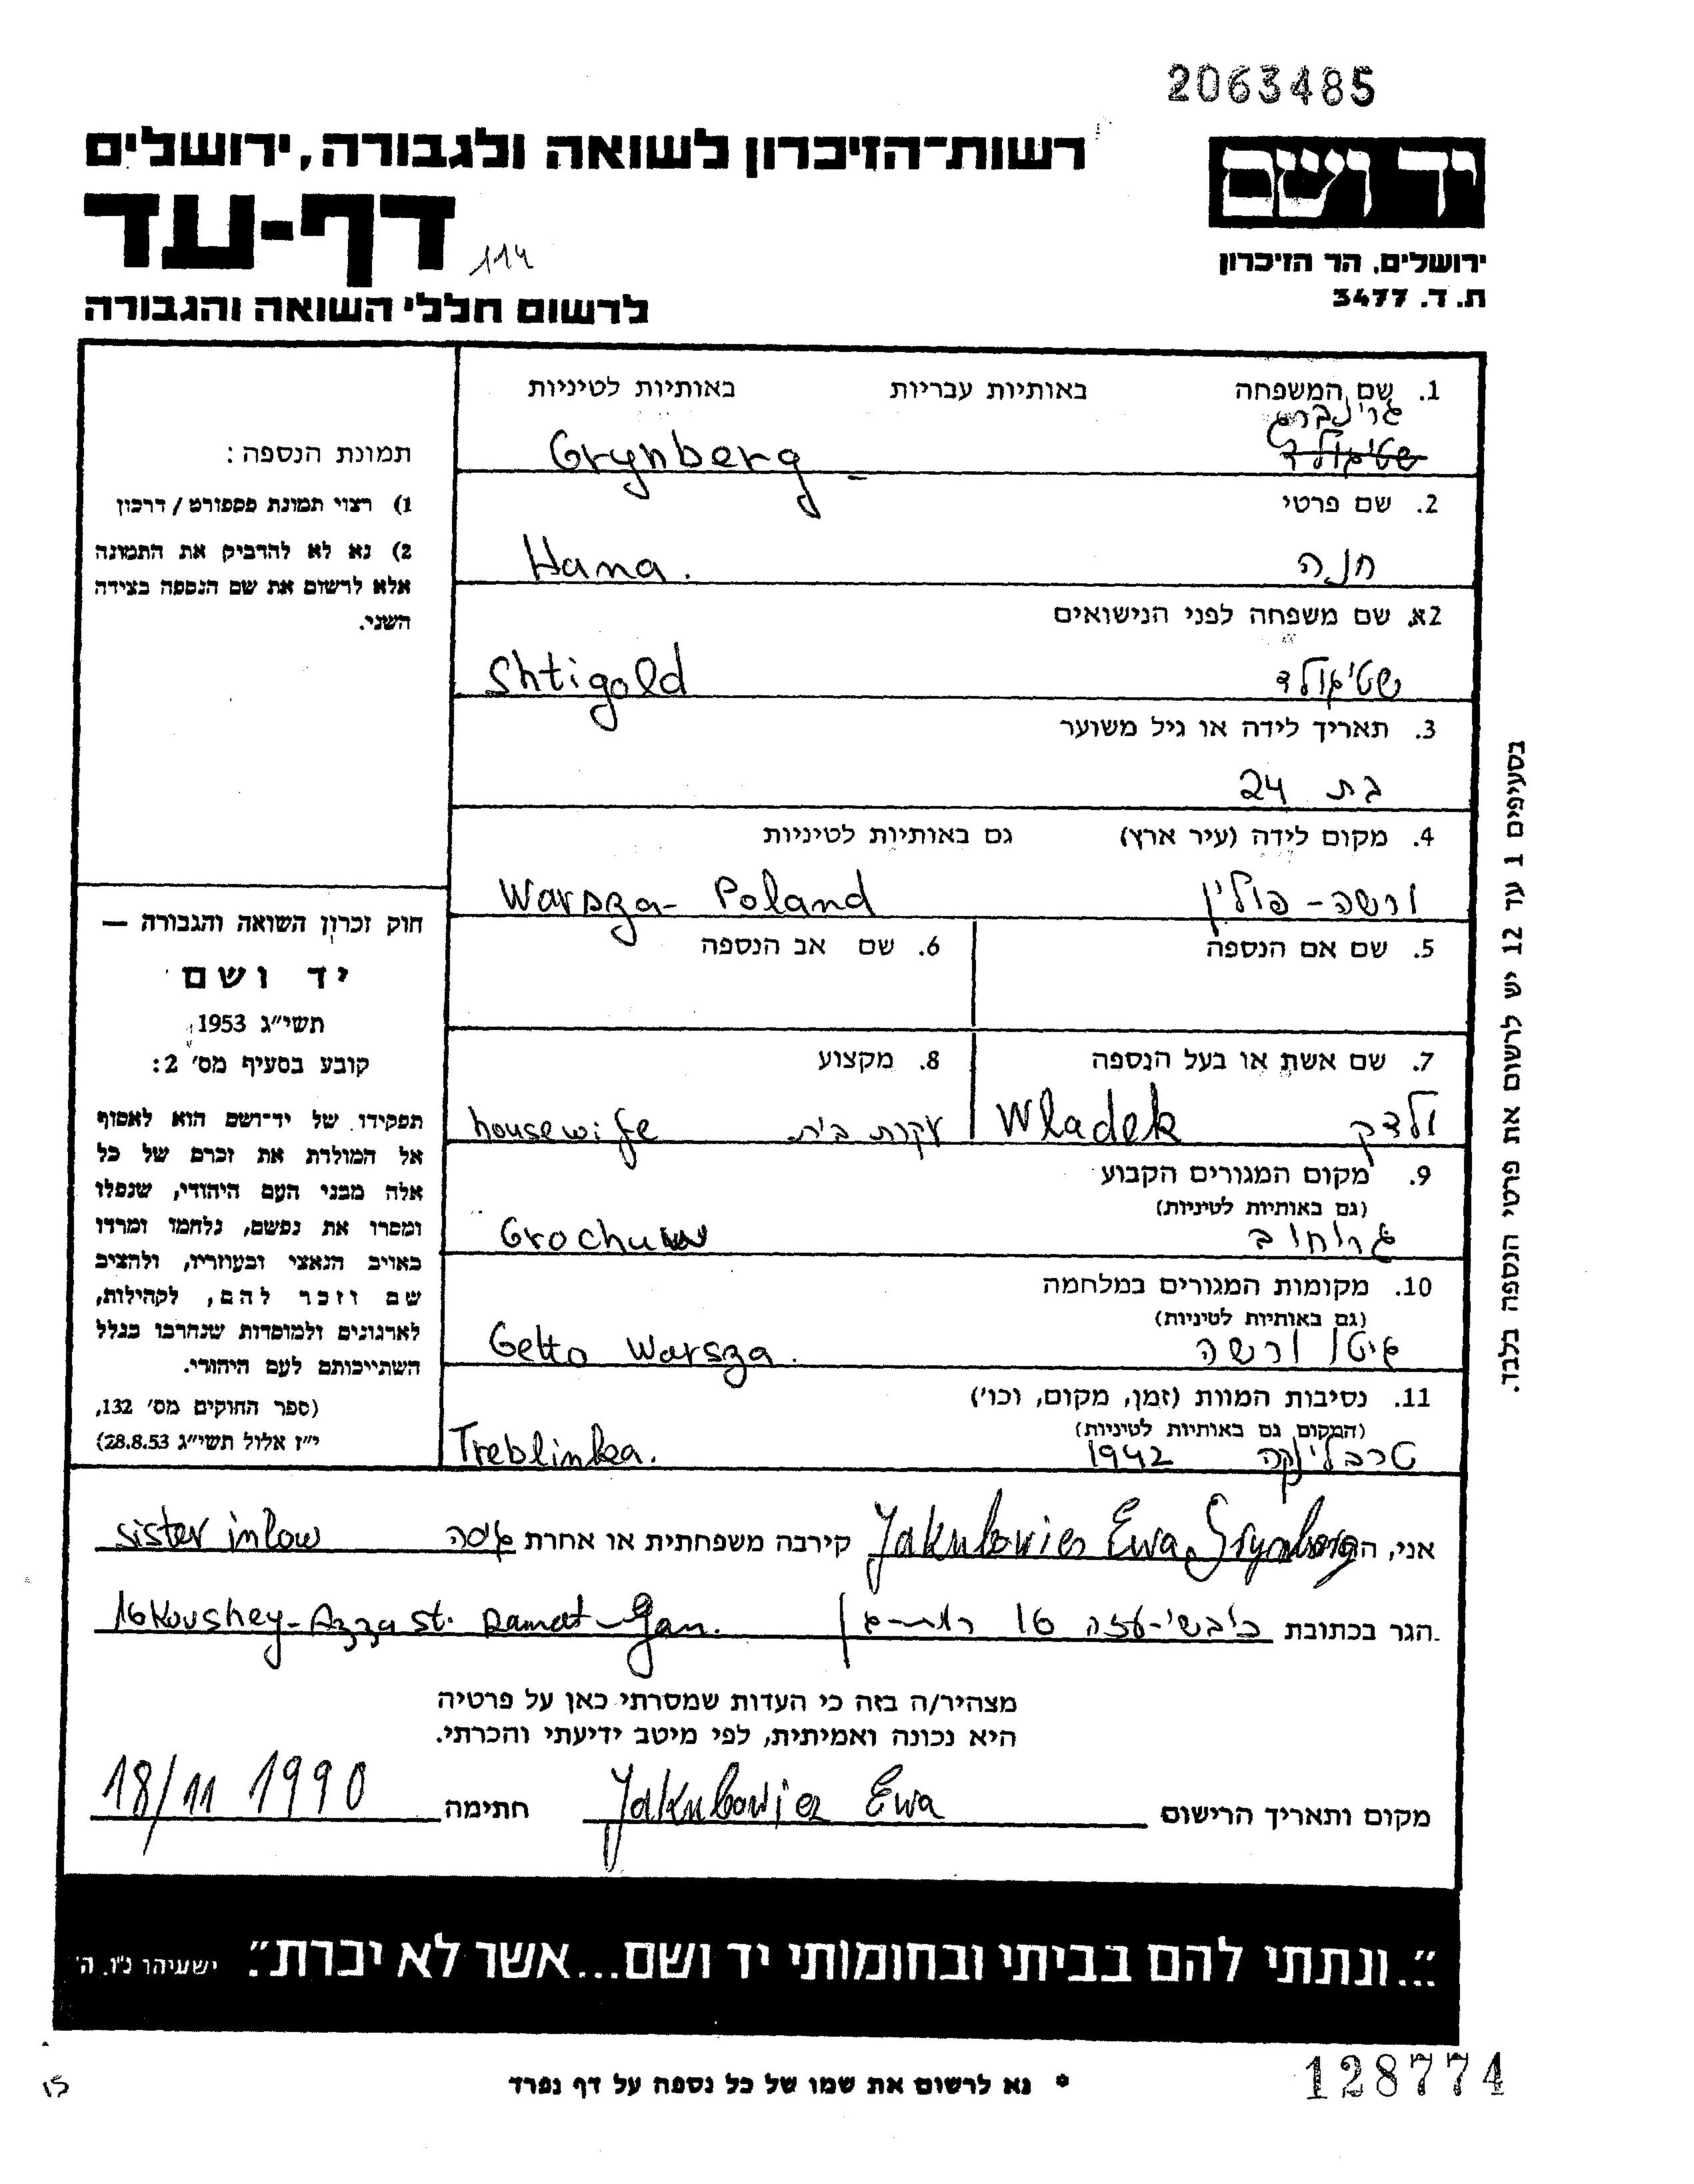 2063485
רשות־הזיכרון לשואה ולגבורה, ירושלים
יד ושם
דף-עד
114
ירושלים, הר הזיכרון
ת. ד. 3477
לרשום חללי השואה והגבורה
1. שם המשפחה באותיות עבריות באותיות לטיניות
גרינברג
שטיגולד
Grynberg
2. שם פרטי
חנה Hana.
2א. שם משפחה לפני הנישואים
שטיגולד Shtigold
3. תאריך לידה או גיל משוער
בת 24
4. מקום לידה (עיר ארץ) גם באותיות לטיניות
ורשה - פולין Warsza - Poland
5. שם אם הנספה 6. שם אב הנספה
7. שם אשת או בעל הנספה 8. מקצוע
ולדק Wladek עקרת בית housewife
9. מקום המגורים הקבוע
(גם באותיות לטיניות)
גרוחוב Grochuw
10. מקומות המגורים במלחמה
(גם באותיות לטיניות)
גיטו ורשה Getto Warsza.
11. נסיבות המוות (זמן, מקום, וכו')
(המקום גם באותיות לטיניות)
טרבלינקה 1942 Treblinka.
תמונת הנספה:
1) רצוי תמונת פספורט / דרכון
2) נא לא להדביק את התמונה
אלא לרשום את שם הנספה בצידה
השני.
חוק זכרון השואה והגבורה —
יד ושם
תשי״ג 1953
קובע בסעיף מס׳ 2:
תפקידו של יד־ושם הוא לאסוף
אל המולדת את זכרם של כל
אלה מבני העם היהודי, שנפלו
ומסרו את נפשם, נלחמו ומרדו
באויב הנאצי ובעוזריו, ולהציב
שם וזכר להם, לקהילות,
לארגונים ולמוסדות שנחרבו בגלל
השתייכותם לעם היהודי.
(ספר החוקים מס׳ 132,
י״ז אלול תשי״ג 28.8.53)
בסעיפים 1 עד 12 יש לרשום את פרטי הנספה בלבד.
אני, הח Jakubowicz Ewa Grynberg קירבה משפחתית או אחרת גיסה sister inlow
הגר בכתובת כובשי-עזה 16 רמת-גן 16 Kovshey-Azza st. Ramat-Gan.
מצהיר/ה בזה כי העדות שמסרתי כאן על פרטיה
היא נכונה ואמיתית, לפי מיטב ידיעתי והכרתי.
מקום ותאריך הרישום Jakubowicz Ewa חתימה 18/11 1990
"...ונתתי להם בביתי ובחומותי יד ושם...אשר לא יכרת". ישעיהו נ״ו, ה׳
* נא לרשום את שמו של כל נספה על דף נפרד
128774
15